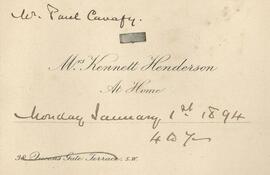 Mr. Paul Cavafy.
Mrs Kennett Henderson
At Home
Monday January 1st 1894
4 to 7
Queens Gate Terrace, S.W.